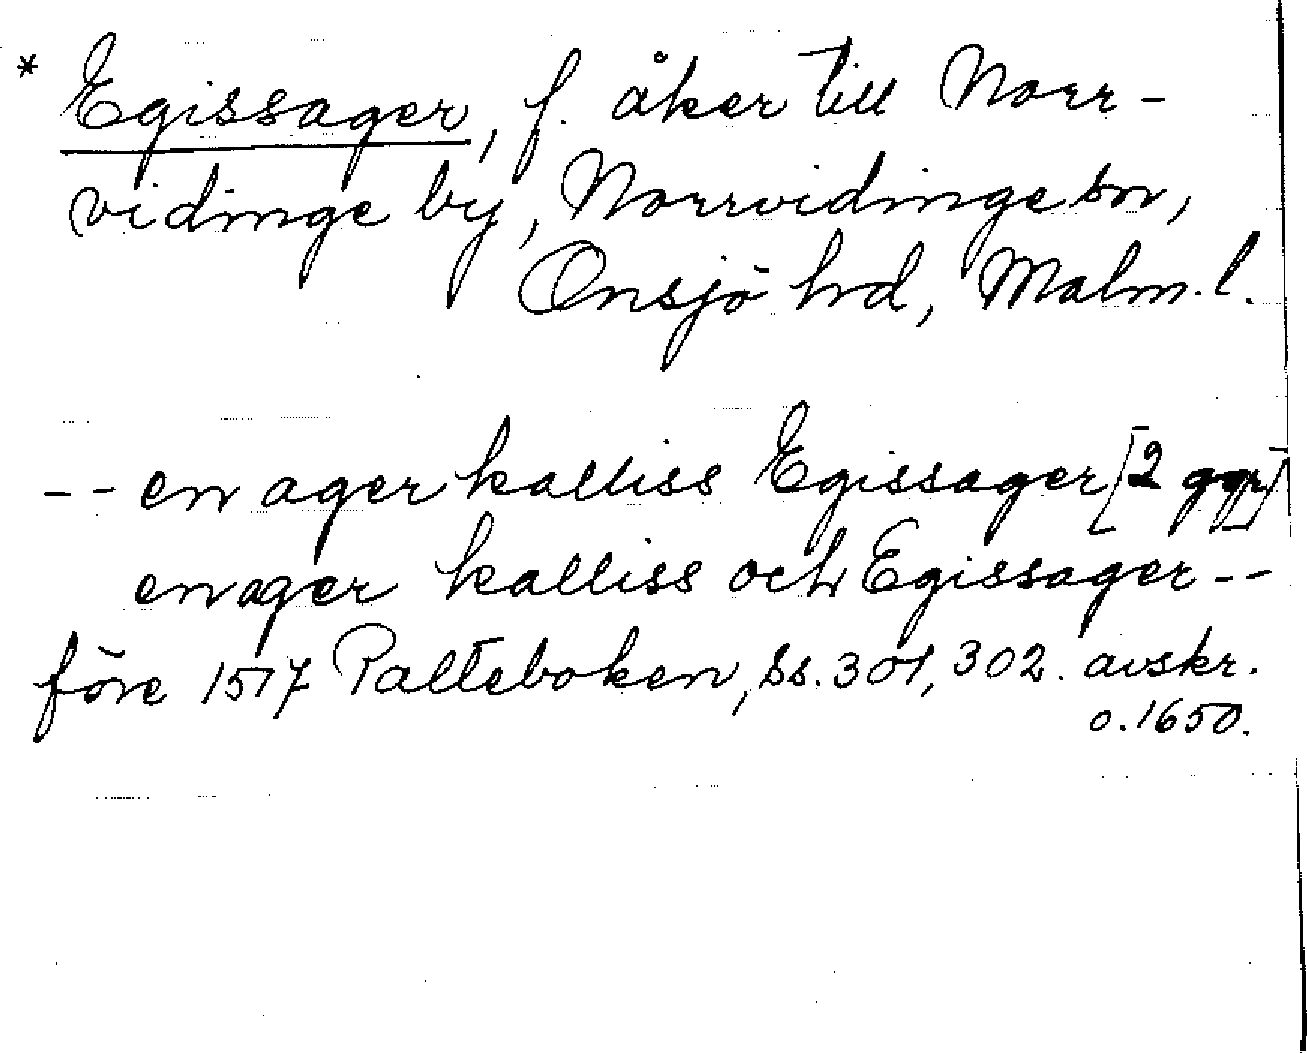 * Egissager, f. åker till Norr-
vidinge by, Norrvidinge sn,
Onsjö hrd, Malm. l.
-- en ager kalliss Egissager [2 ggr]
en ager kalliss och Egissager --
före 1517 Palteboken, ss. 301, 302. avskr.
o. 1650.